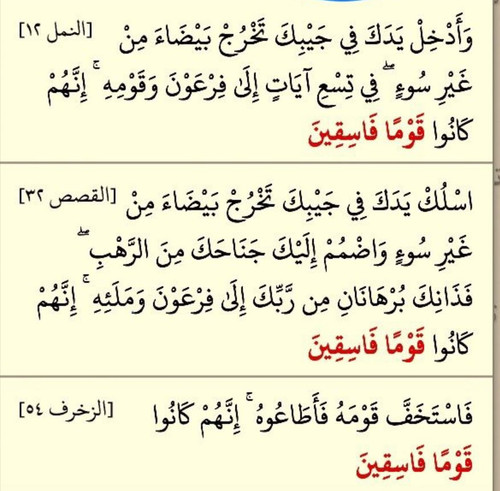 وَأَدْخِلْ يَدَكَ فِي جَيْبِكَ تَخْرُجْ بَيْضَاءَ مِنْ [النمل ١٢]
غَيْرِ سُوءٍ ۖ فِي تِسْعِ آيَاتٍ إِلَىٰ فِرْعَوْنَ وَقَوْمِهِ ۚ إِنَّهُمْ
كَانُوا قَوْمًا فَاسِقِينَ
اسْلُكْ يَدَكَ فِي جَيْبِكَ تَخْرُجْ بَيْضَاءَ مِنْ [القصص ٣٢]
غَيْرِ سُوءٍ وَاضْمُمْ إِلَيْكَ جَنَاحَكَ مِنَ الرَّهْبِ ۖ
فَذَانِكَ بُرْهَانَانِ مِن رَّبِّكَ إِلَىٰ فِرْعَوْنَ وَمَلَئِهِ ۚ إِنَّهُمْ
كَانُوا قَوْمًا فَاسِقِينَ
فَاسْتَخَفَّ قَوْمَهُ فَأَطَاعُوهُ ۚ إِنَّهُمْ كَانُوا [الزخرف ٥٤]
قَوْمًا فَاسِقِينَ